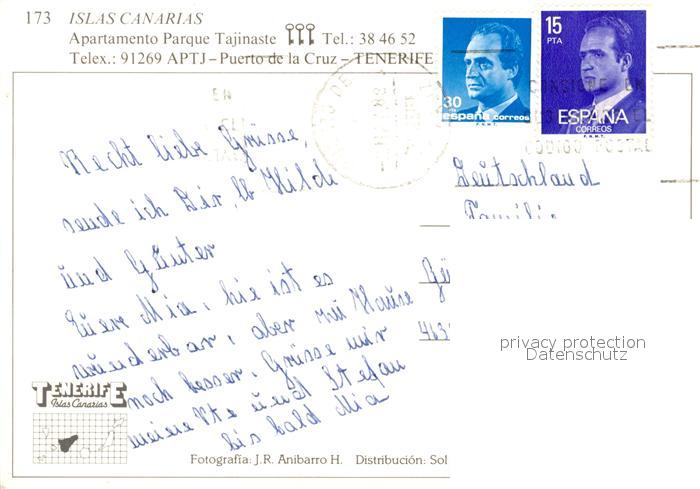 173 ISLAS CANARIAS
Apartamento Parque Tajinaste Tel.: 38 46 52
Telex.: 91269 APTJ – Puerto de la Cruz – TENERIFE
30
españa correos
F.N.M.T.
15
PTA
ESPAÑA
CORREOS
F.N.M.T.
CONSIGNE EN
CODIGO POSTAL
EN
Recht liebe Grüsse,
sende ich Dir, lb Hilde
und Günter
Euer Mia, hie ist es
wunderbar, aber zu Hause
noch besser. Grüsse mir
und Stefan
bis bald Mia
Deutschland
Familie
privacy protection
Datenschutz
TENERIFE
Islas Canarias
Fotografía: J.R. Anibarro H. Distribución: Sol